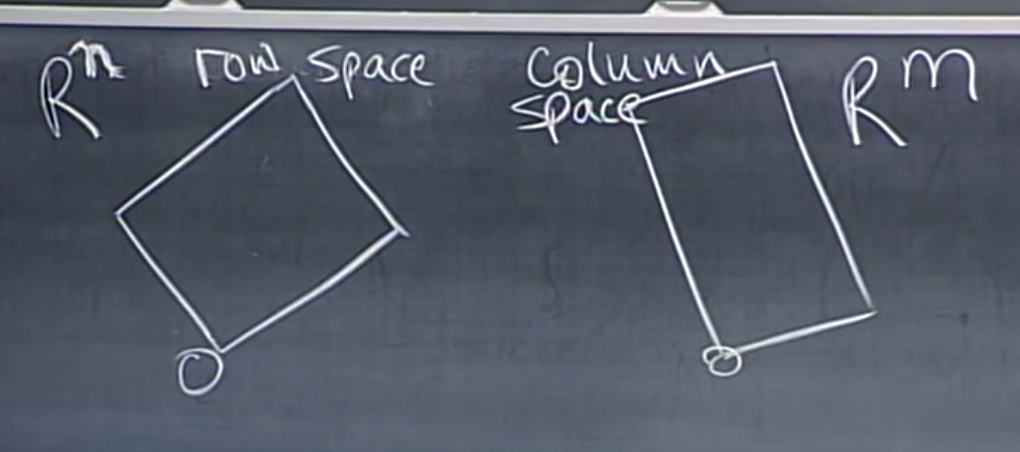 Rⁿ row space
column
space
Rᵐ
O
O